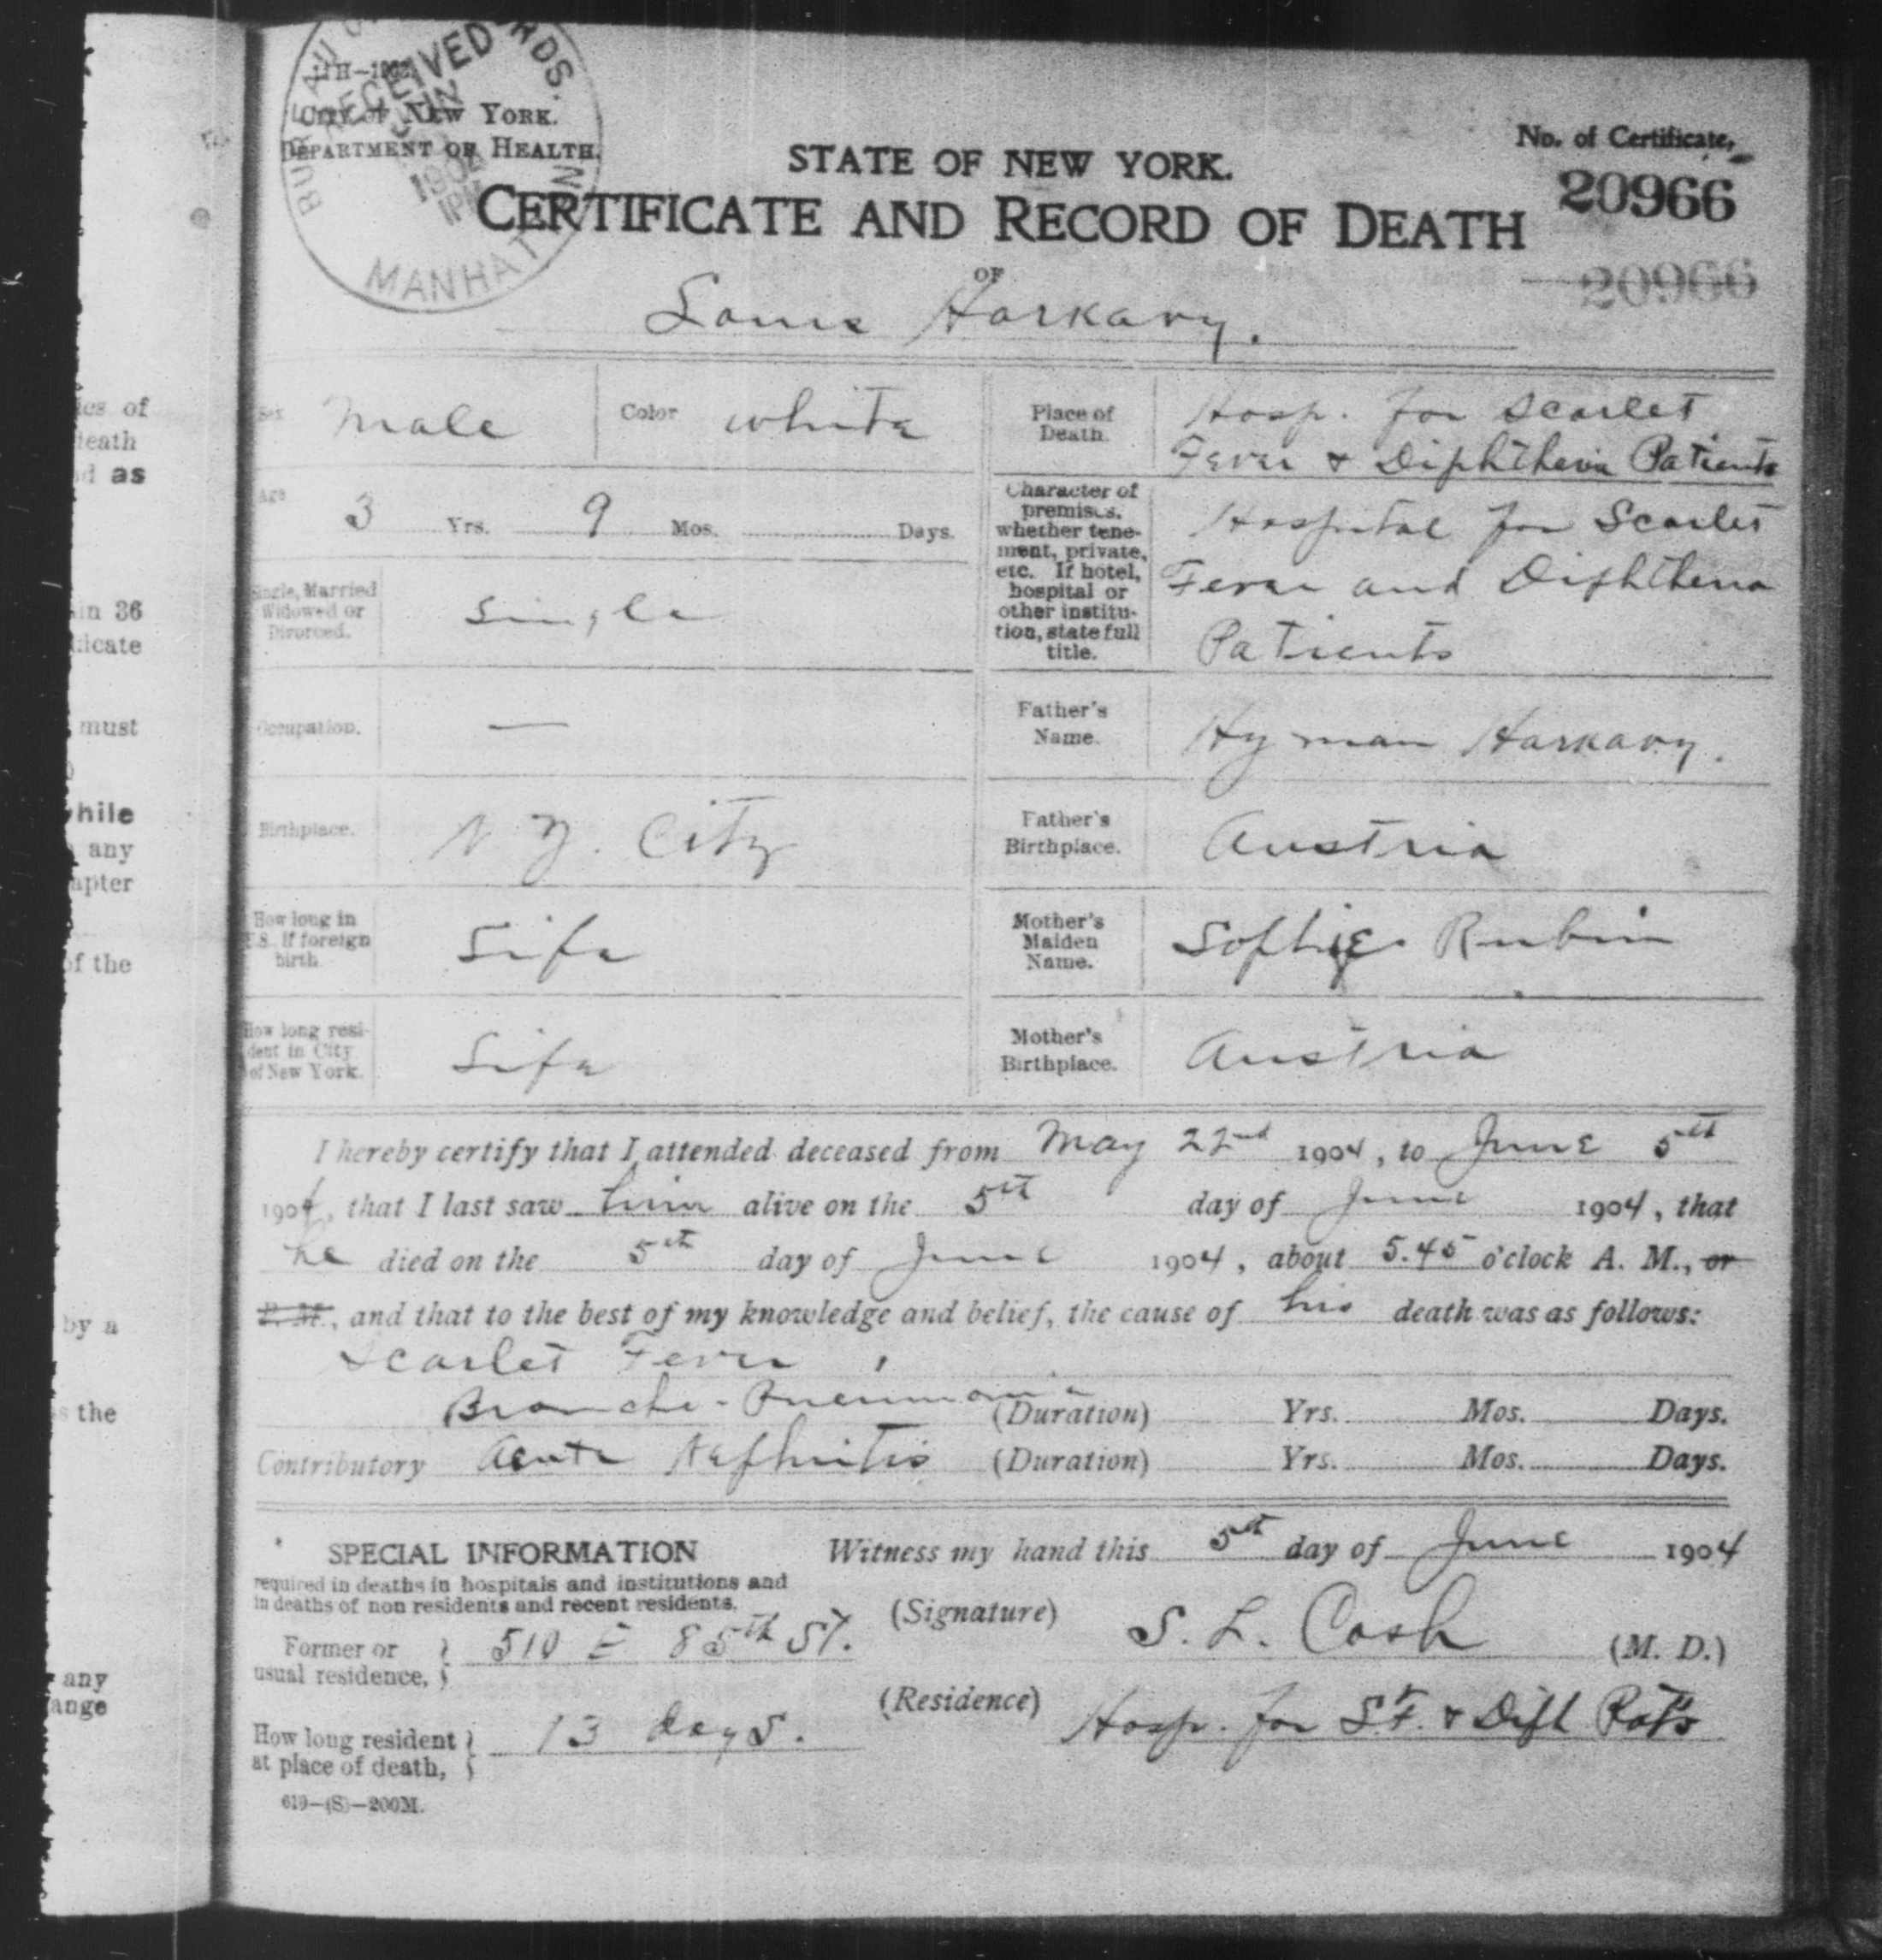 BUREAU OF RECORDS.
RECEIVED
JUN
1904
MANHATTAN
CITY OF NEW YORK.
DEPARTMENT OF HEALTH.
No. of Certificate,
20966
20966
STATE OF NEW YORK.
CERTIFICATE AND RECORD OF DEATH
OF
Louis Harkavy.
Sex Male
Color white
Age 3 Yrs. 9 Mos. Days.
Single, Married Widowed or Divorced. Single
Occupation. —
Birthplace. N. Y. City
How long in U.S. if foreign birth Life
How long resident in City of New York. Life
Place of Death. Hosp. for Scarlet
Fever & Diphtheria Patients
Character of premises, whether tenement, private, etc. If hotel, hospital or other institution, state full title.
Hospital for Scarlet
Fever and Diphtheria
Patients
Father's Name. Hyman Harkavy.
Father's Birthplace. Austria
Mother's Maiden Name. Sophie Rubin
Mother's Birthplace. Austria
I hereby certify that I attended deceased from May 22nd 1904, to June 5th
1904, that I last saw him alive on the 5th day of June 1904, that
he died on the 5th day of June 1904, about 5.45 o'clock A. M., or
P. M., and that to the best of my knowledge and belief, the cause of his death was as follows:
Scarlet Fever,
Broncho-Pneumonia (Duration) Yrs. Mos. Days.
Contributory Acute Nephritis (Duration) Yrs. Mos. Days.
Witness my hand this 5th day of June 1904
(Signature) S. L. Cash (M. D.)
(Residence) Hosp. for S.F. & Diph Pats
SPECIAL INFORMATION
required in deaths in hospitals and institutions and
in deaths of non residents and recent residents.
Former or usual residence, 510 E 85th St.
How long resident at place of death, 13 days.
619—(S)—200M.
death
d as
in 36
must
while
any
of the
by a
the
any